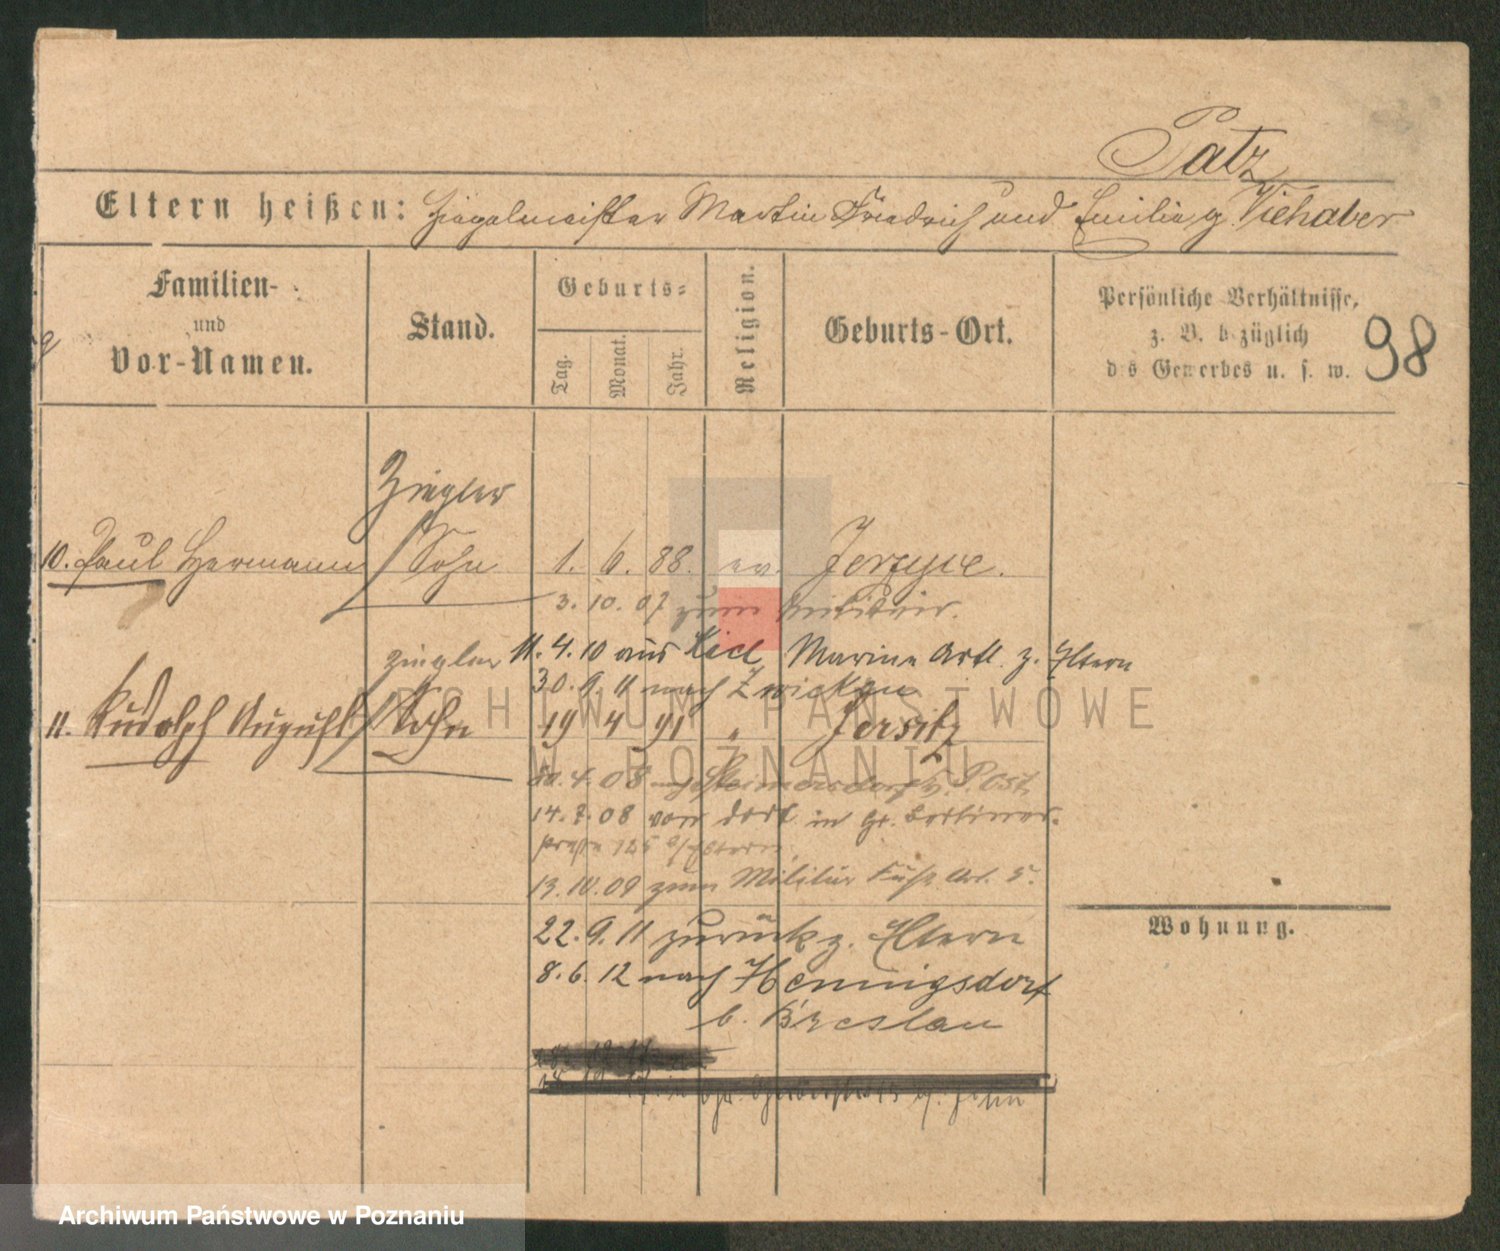 Patz
Eltern heißen: Ziegelmeister Martin Friedrich und Emilie g. Viehaber
Familien-
und
Vor-Namen.
Stand.
Geburts-
Tag.
Monat.
Jahr.
Religion.
Geburts-Ort.
Persönliche Verhältnisse,
z. B. bezüglich
des Gewerbes u. s. w.
98
Ziegler
10. Paul Hermann Sohn 1. 6. 88. ev. Jerzyce.
3. 10. 07 zum Militär.
Ziegler 11. 4. 10 aus Kiel Marine Artl. z. Eltern
30. 9. 11 nach Zwickau
11. Rudolph August Sohn 19 4 91 " Jersitz
30. 4. 08 Post
14. 7. 08 von dort in Gr. Berliner-
straße 125 z/Eltern
13. 10. 09 zum Militär Fußa Art. 5.
22. 9. 11 zurück z. Eltern
8. 6. 12 nach Hennigsdorf
b. Breslau
Wohnung.
ARCHIWUM PAŃSTWOWE
W POZNANIU
Archiwum Państwowe w Poznaniu